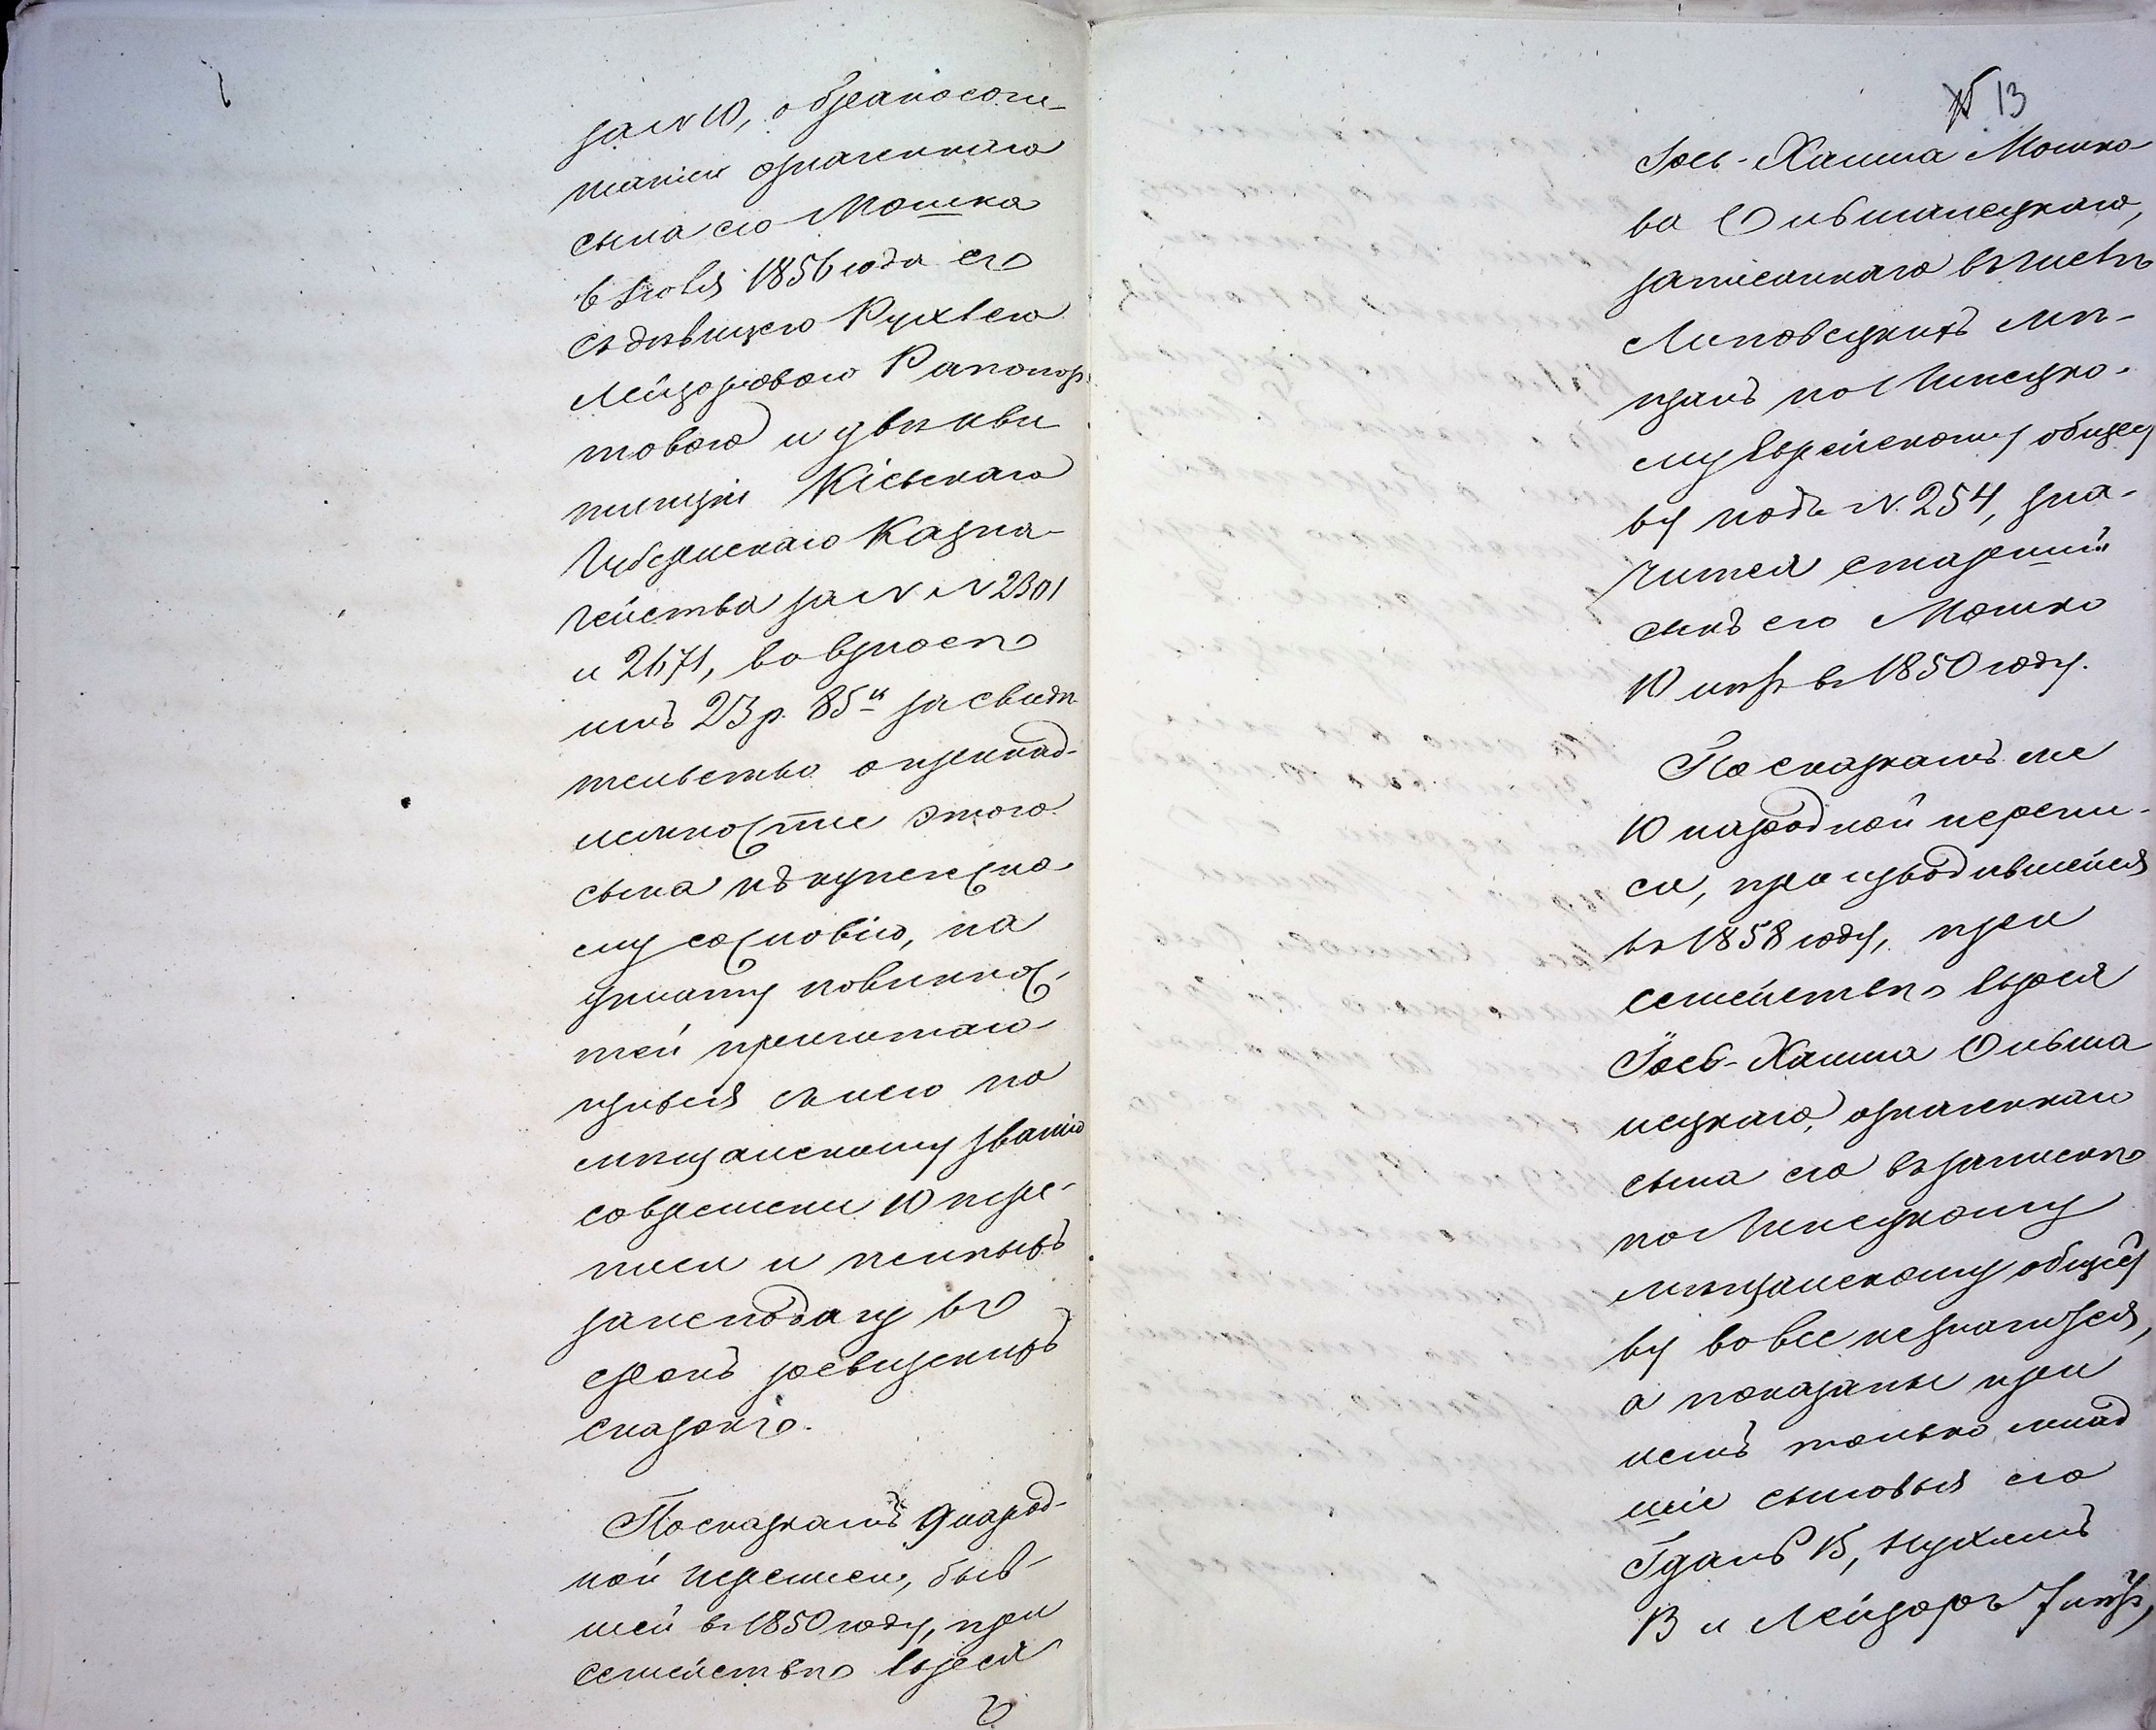 за № 10, о бракосоче-
таніи означеннаго
сына его Мошка
6 Іюля 1856 года его
съ дѣвицею Рухлею
Лейзоровою Рапопор-
товою и двѣ кви
танціи Кіевскаго
Губернскаго Казна-
чейства за №№ 2301
и 2671, во взносѣ
имъ 23 р. 85 к за свидѣ
тельство о принад-
лежности этого
сына къ купеческо-
му сословію, на
уплату повиннос-
тей причитаю-
щихся съ него по
мѣщанскому званію
со времени 10 пере-
писи и пени
за неподачу въ
срокъ ревизскихъ
сказокъ.
По сказкамъ 9 народ-
ной переписи, быв-
шей въ 1850 году, при
семействѣ еврея
13
Іось-Хаима Мошко
ва Ольшанецкаго,
записаннаго въ числѣ
Липовецкихъ мѣ-
щанъ по Линецко-
му Еврейскому общес
ву подъ № 254, зна-
чится старшій
сынъ его Мошко
10 лѣтъ въ 1850 году.
По сказкамъ же
10 народной перепи-
си, производившейся
въ 1858 году, при
семействѣ еврея
Іось-Хаима Ольша
нецкаго, означеннаго
сына его въ запискѣ
по Линецкому
мѣщанскому общес
ву вовсе незначится,
а показаны при
немъ только млад
шіе сыновья его
Іданъ 15, Нухимъ
13 и Лейзоръ 7 лѣтъ,